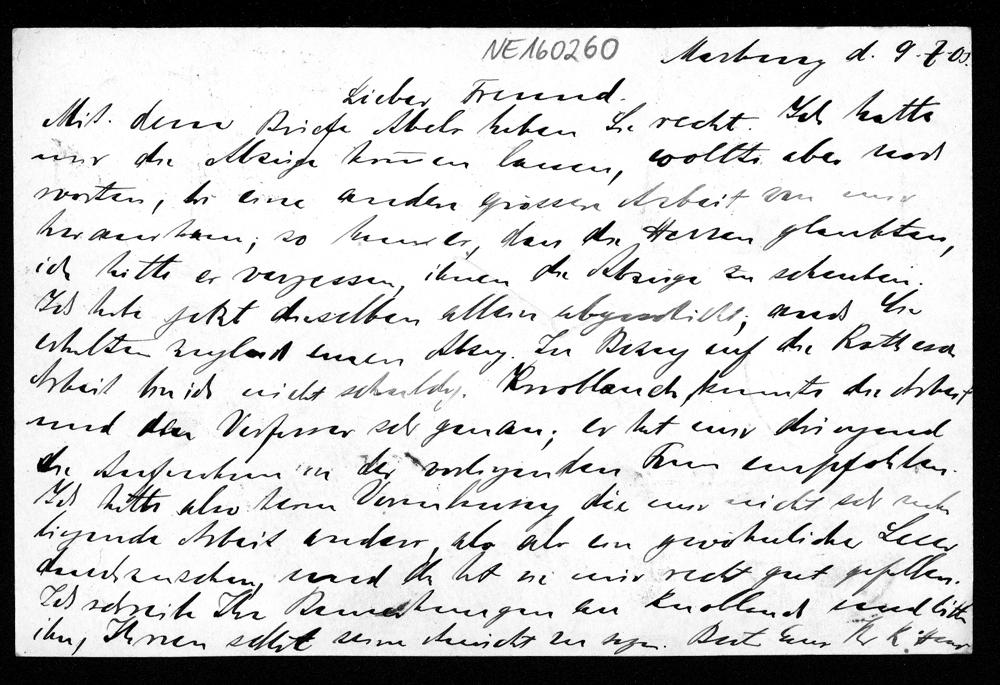 NE160260
Marburg d. 9. 7. 03.
Lieber Freund.
Mit dem Briefe Abels haben Sie recht. Ich hatte
mir die Abzüge kommen lassen, wollte aber noch
warten, bis eine andere grössere Arbeit von mir
herauskam; so kam es, dass die Herren glaubten,
ich hätte es vergessen, ihnen die Abzüge zu schenken.
Ich habe jetzt dieselben allen abgeschickt, auch Sie
erhalten zugleich einen Abzug. In Bezug auf die
Arbeit bin ich nicht schuldig. Knoblauch kannte die Arbeit
und den Verfasser sehr genau; er hat mir dringend
die Aufnahme in der vorliegenden Form empfohlen.
Ich hatte also keine Veranlassung die mir nicht sehr nahe
liegende Arbeit anders, als als ein gewöhnlicher Leser
durchzusehen, und da hat sie mir recht gut gefallen.
Ich schreibe Ihre Bemerkungen an Knoblauch und bitte
ihn, Ihnen selbst seine Ansicht zu sagen. Ihr K. Hensel